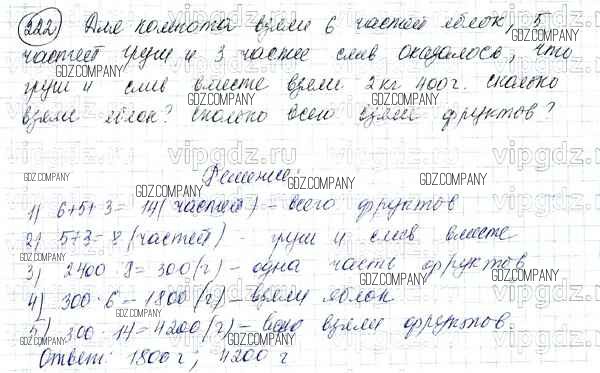 222) Для компота взяли 6 частей яблок, 5
частей груш и 3 части слив оказалось, что
груш и слив вместе взяли 2кг 400г. сколько
взяли яблок? сколько всего взяли фруктов?
Решение:
1) 6+5+3= 14(частей) - всего фруктов
2) 5+3=8 (частей) - груш и слив вместе
3) 2400:8=300(г) - одна часть фруктов
4) 300·6=1800(г) - взяли яблок
5) 300·14=4200(г) - всего взяли фруктов.
Ответ: 1800г; 4200г
GDZ.COMPANY
vipgdz.ru